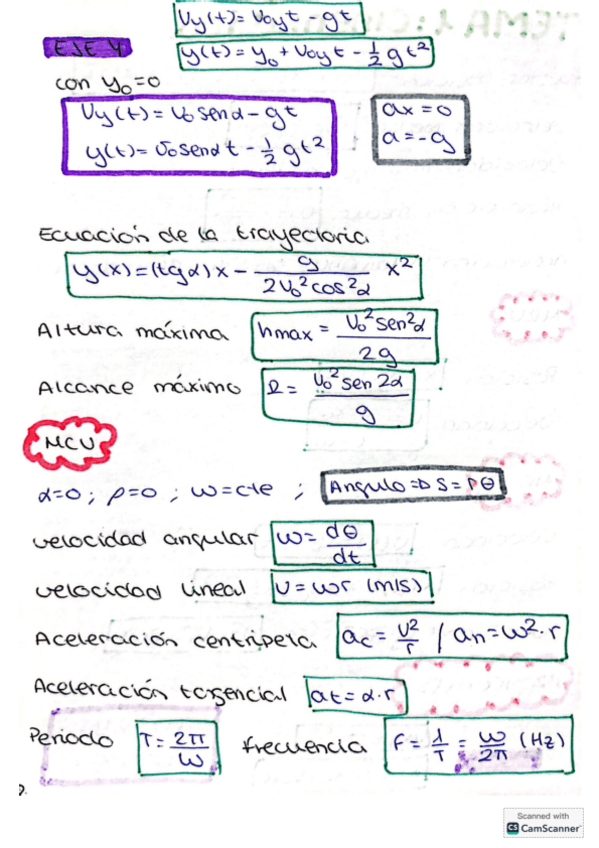 Vy(t)= Voyt - gt
EJE Y
y(t)= y₀ + Voyt - 1/2 gt²
con y₀=0
Vy(t)= V₀ senα - gt
y(t)= V₀senα t - 1/2 gt²
ax=0
a=-g
Ecuación de la trayectoria
y(x)=(tgα)x - g/(2V₀²cos²α) x²
Altura máxima hmax = V₀²sen²α/2g
Alcance máximo R = V₀²sen2α/g
MCU
α=0 ; ρ=0 ; ω=cte ; Angulo ⇒ S=rθ
velocidad angular ω= dθ/dt
velocidad lineal V=ωr (m/s)
Aceleración centripeta ac = V²/r / an=ω²·r
Aceleración tangencial at=α·r
Periodo T= 2π/ω frecuencia F= 1/T = ω/2π (Hz)
Scanned with
CS CamScanner